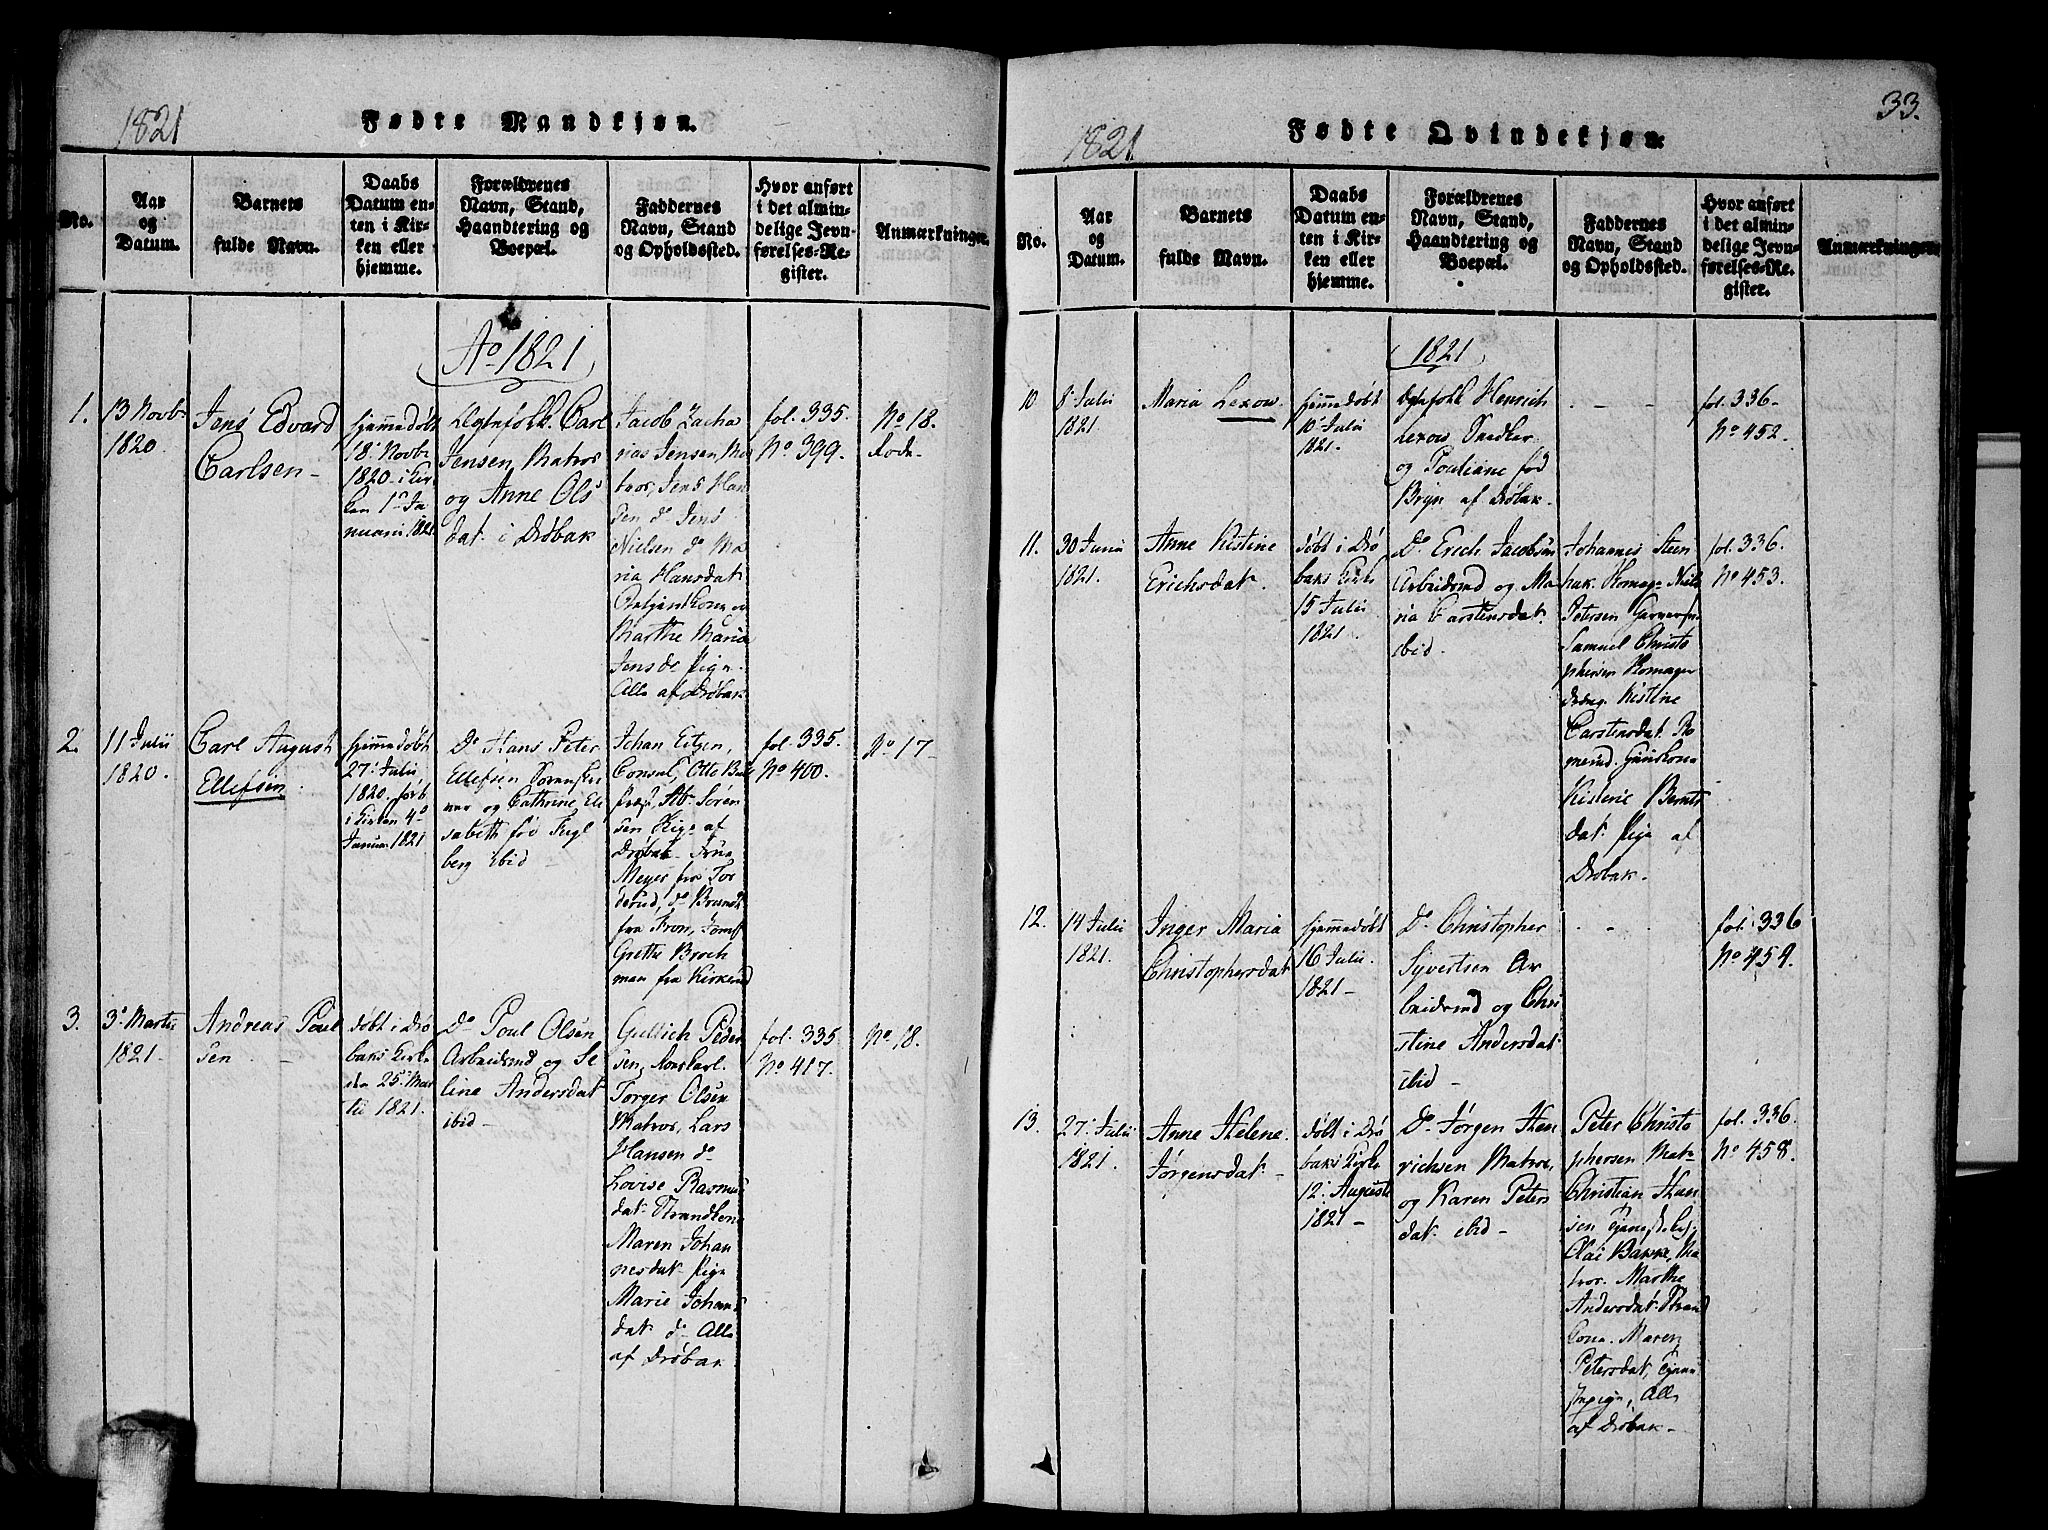 1821
Fødte Mandkjøn.
No.
Aar
og
Datum.
Barnets
fulde Navn.
Daabs
Datum en-
ten i Kir-
ken eller
hjemme.
Forældrenes
Navn, Stand,
Haandtering og
Boepæl.
Faddernes
Navn, Stand
og Opholdssted.
Hvor anført
i det almin-
delige Jevn-
førelses-Re-
gister.
Anmærkninger.
Ao 1821
1.
13 Novbr
1820
Jens Edvard
Carlsen
hjemmedøbt
18 Novbr
1820 i Kir
ken 1 Ja
nuarii 1821
Ægtefolk Carl
Jensen Matros
og Anne Ols
dat i Drøbak
Jacob Zacha
rias Jensen, Ma
tros, Jens Han
sen do Jens
Nielsen do Ma
ria Hansdat.
kone og
Marthe Maria
Jensd. Pige
Alle af Drøbak
fol. 335.
No 399.
No 18.
2.
11 Julii
1820.
Carl August
Ellefsen
hjemmedøbt
27 Julii
1820
i Kirken 4
Januar 1821
Do Hans Peter
Ellefsen Sorenskri
ver og Cathrine Eli
sabeth fød Fugl
berg ibid
Johan
Consul, Otto
Sören
sen, Pige af
Drøbak Frue
Meyer fra Tor
derud, do Brandt
fra Fron, Jomf
Grethe Broch
man fra Kirkerud
fol. 335.
No 400.
No 17
3.
3 Martii
1821
Andreas Poul
sen
Døbt i Drø
baks Kirke
den 25 Mar
tii 1821.
Do Poul Olsen
Arbeidsmd og Se
line Andersdat
ibid
Gullich Peder
sen,
Torger Olsen
Matros, Lars
Hansen do
Lovise Rasmus
dat
Maren Johan
nesdat Pige
Marie Johans
dat do Alle
af Drøbak
fol. 335
No 417.
No 18.
33.
1821
Fødte Qvindekjøn.
No.
Aar
og
Datum.
Barnets
fulde Navn.
Daabs
Datum en-
ten i Kir-
ken eller
hjemme.
Forældrenes
Navn, Stand,
Haandtering og
Boepæl.
Faddernes
Navn, Stand
og Opholdssted.
Hvor anført
i det almin-
delige Jevn-
førelses-Re-
gister.
Anmærkninger.
1821
10
8 Julii
1821
Maria Lexow
hjemmedøbt
10 Julii
1821.
Ægtefolk Henrich
Lexow Snedker
og Pouliane fød
Bryn af Drøbak.
- - -
fol. 336
No 452.
11.
30 Junii
1821.
Anne Kistine
Erichsdat.
døbt i Drø
baks Kirke
15 Julii
1821.
Do Erich Jacobsen
Arbeidsmd og Ma
ria Carstensdat.
ibid.
Johannes Steen
Niels
Petersen
Samuel Christo
phersen
Kistine
Carstensdat.
Kisterie Bernts
dat Pige af
Drøbak.
fol. 336.
No 453.
12.
14 Julii
1821.
Inger Maria
Christophersdat
hjemmedøbt
16 Julii
1821
Do Christopher
Syvertsen Ar
beidsmd og Chri
stine Andersdat
ibid
- - -
fol. 336
No 454.
13.
27 Julii
1821.
Anne Helene
Jørgensdat
døbt i Drø
baks Kirke
12 Augusti
1821
Do Jørgen Hen
richsen Matros,
og Karen Peters
dat ibid
Peter Christo
phersen Mat
Christian Han
sen
Olai Bakke, Ma
tros. Marthe
Andersdat Strand
Cone. Maren
Petersdat,
Alle
af Drøbak
fol. 336.
No 458.